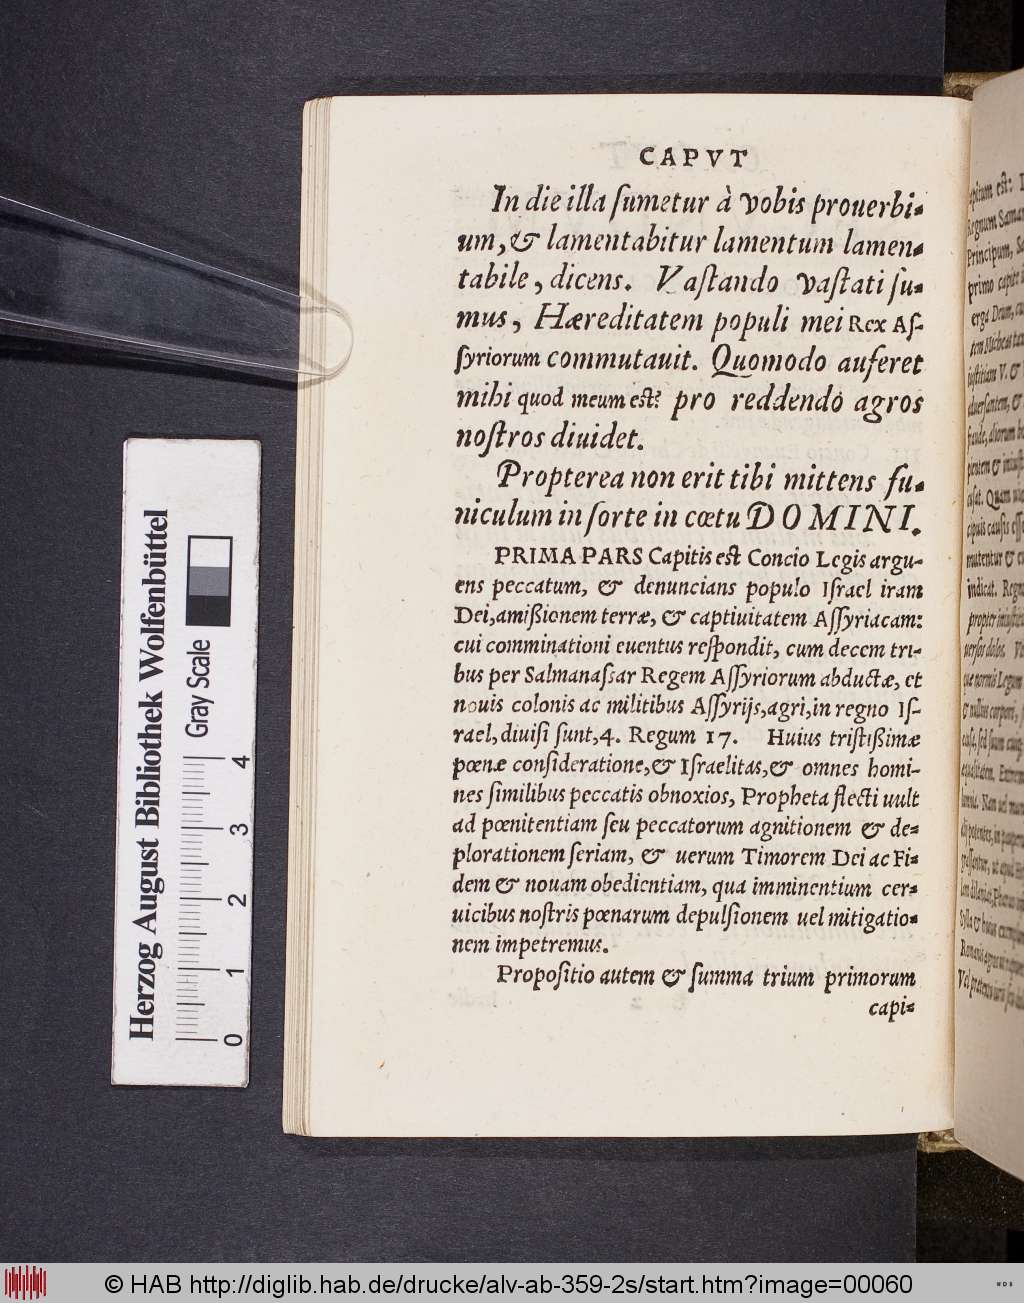 CAPVT
In die illa ſumetur à vobis prouerbi-
um, & lamentabitur lamentum lamen-
tabile, dicens. Vaſtando vaſtati ſu-
mus, Hæreditatem populi mei Rex Aſ-
ſyriorum commutauit. Quomodo auferet
mihi quod meum est? pro reddendo agros
noſtros diuidet.
Propterea non erit tibi mittens fu-
niculum in ſorte in cœtu DOMINI.
PRIMA PARS Capitis est Concio Legis argu-
ens peccatum, & denuncians populo Iſrael iram
Dei, amißionem terræ, & captiuitatem Aſſyriacam:
cui comminationi euentus reſpondit, cum decem tri-
bus per Salmanaſsar Regem Aſſyriorum abductæ, et
nouis colonis ac militibus Aſſyrijs, agri, in regno Iſ-
rael, diuiſi ſunt, 4. Regum 17. Huius tristißimæ
pœnæ conſideratione, & Iſraelitas, & omnes homi-
nes ſimilibus peccatis obnoxios, Propheta flecti uult
ad pœnitentiam ſeu peccatorum agnitionem & de-
plorationem ſeriam, & uerum Timorem Dei ac Fi-
dem & nouam obedientiam, qua imminentium cer-
uicibus noſtris pœnarum depulſionem uel mitigatio-
nem impetremus.
Propoſitio autem & ſumma trium primorum
capi-
Regnum Samar
Principum, Sa
primo capite
erga Deum, cu
iuſtitiam V. &
aduerſantem, &
fraude, aliorum
mutentur & c
indicat. Regn
propter iniuſtici
que normis Legum
& nullius corpori,
Herzog August Bibliothek Wolfenbüttel
Gray Scale
0 1 2 3 4
© HAB http://diglib.hab.de/drucke/alv-ab-359-2s/start.htm?image=00060